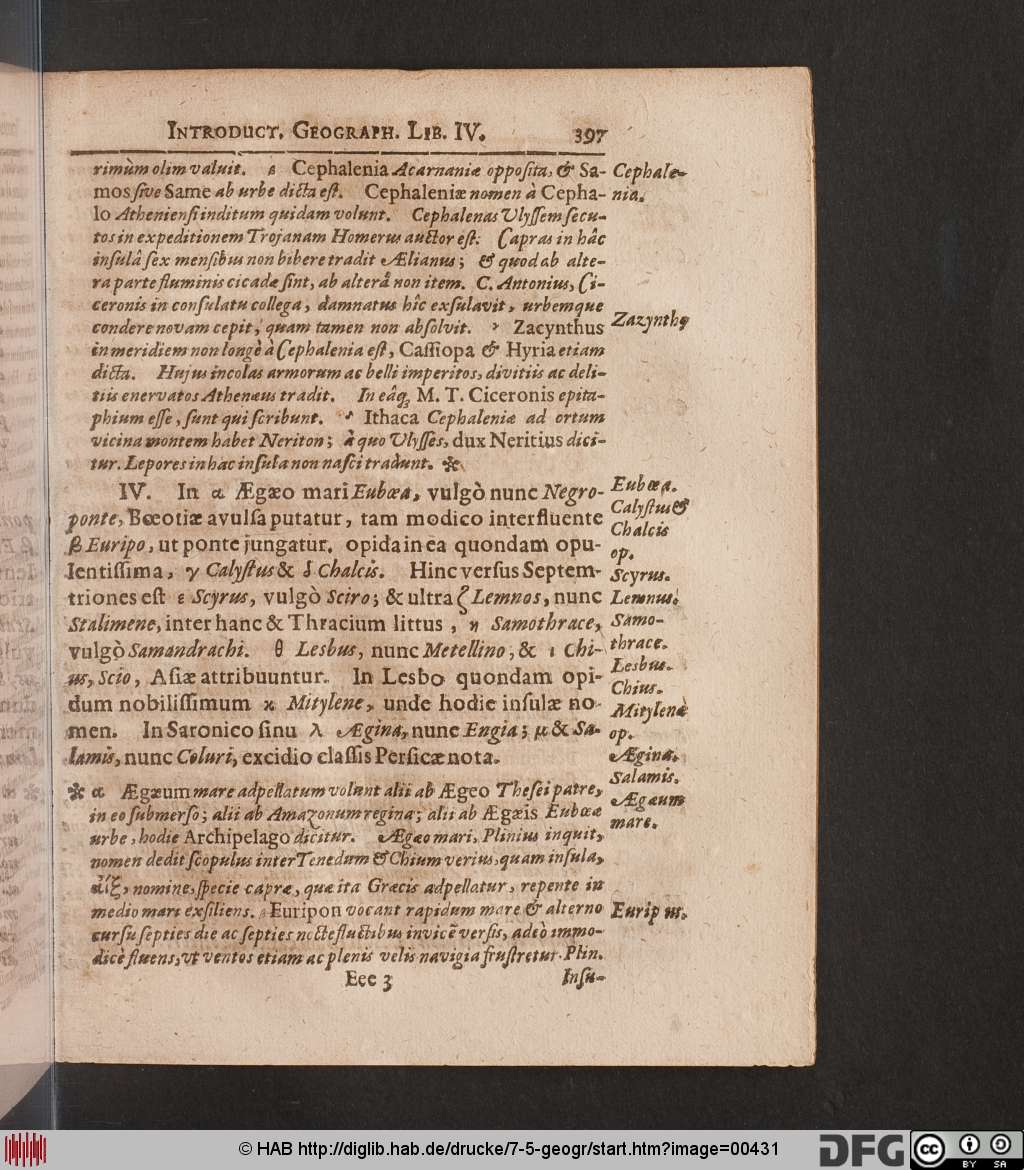 INTRODUCT. GEOGRAPH. LIB. IV. 397
rimùm olim valuit. Cephalenia Acarnaniæ opposita, & Sa-
mos sive Same ab urbe dicta est. Cephaleniæ nomen à Cepha-
lo Atheniensi inditum quidam volunt. Cephalenas Ulyssem secu-
tos in expeditionem Trojanam Homerus auctor est: Capras in hâc
insulâ sex mensibus non bibere tradit Ælianus; & quod ab alte-
ra parte fluminis cicadæ sint, ab alterâ non item. C. Antonius, Ci-
ceronis in consulatu collega, damnatus hîc exsulavit, urbemque
condere novam cepit, quam tamen non absolvit. Zacynthus
in meridiem non longè à Cephalenia est, Cassiopa & Hyria etiam
dicta. Hujus incolas armorum ac belli imperitos, divitiis ac deli-
tiis enervatos Athenæus tradit. In eâq; M. T. Ciceronis epita-
phium esse, sunt qui scribunt. Ithaca Cephaleniæ ad ortum
vicina montem habet Neriton; à quo Ulysses, dux Neritius dici-
tur. Lepores in hac insula non nasci tradunt. ✻
IV. In α Ægæo mari Eubœa, vulgò nunc Negro-
ponte, Bœotiæ avulsa putatur, tam modico interfluente
β Euripo, ut ponte jungatur. opida in ea quondam opu-
lentissima, γ Calystus & δ Chalcis. Hinc versus Septem-
triones est ε Scyrus, vulgò Sciro; & ultra ζ Lemnos, nunc
Stalimene, inter hanc & Thracium littus, η Samothrace,
vulgò Samandrachi. θ Lesbus, nunc Metellino, & ι Chi-
us, Scio, Asiæ attribuuntur. In Lesbo quondam opi-
dum nobilissimum κ Mitylene, unde hodie insulæ no-
men. In Saronico sinu λ Ægina, nunc Engia; μ & Sa-
lamis, nunc Coluri, excidio classis Persicæ nota.
✻ α Ægæum mare adpellatum volunt alii ab Ægeo Thesei patre,
in eo submerso; alii ab Amazonum regina; alii ab Ægæis Eubœæ
urbe, hodie Archipelago dicitur. Ægæo mari, Plinius inquit,
nomen dedit scopulus inter Tenedum & Chium verius, quam insula,
αἴξ, nomine, specie capræ, quæ ita Græcis adpellatur, repente in
medio mari exsiliens. Euripon vocant rapidum mare & alterno
cursu septies die ac septies nocte fluctibus invicē versis, adeò immo-
dicè fluens, ut ventos etiam ac plenis velis navigia frustretur. Plin.
Eee 3 Insu-
Cephale-
nia.
Zazynthꝰ
Eubœa.
Calystus &
Chalcis
op.
Scyrus.
Lemnus.
Samo-
thrace.
Lesbus.
Chius.
Mitylene
op.
Ægina.
Salamis.
Ægæum
mare.
Euripus.
© HAB http://diglib.hab.de/drucke/7-5-geogr/start.htm?image=00431
DFG
cc
BY SA